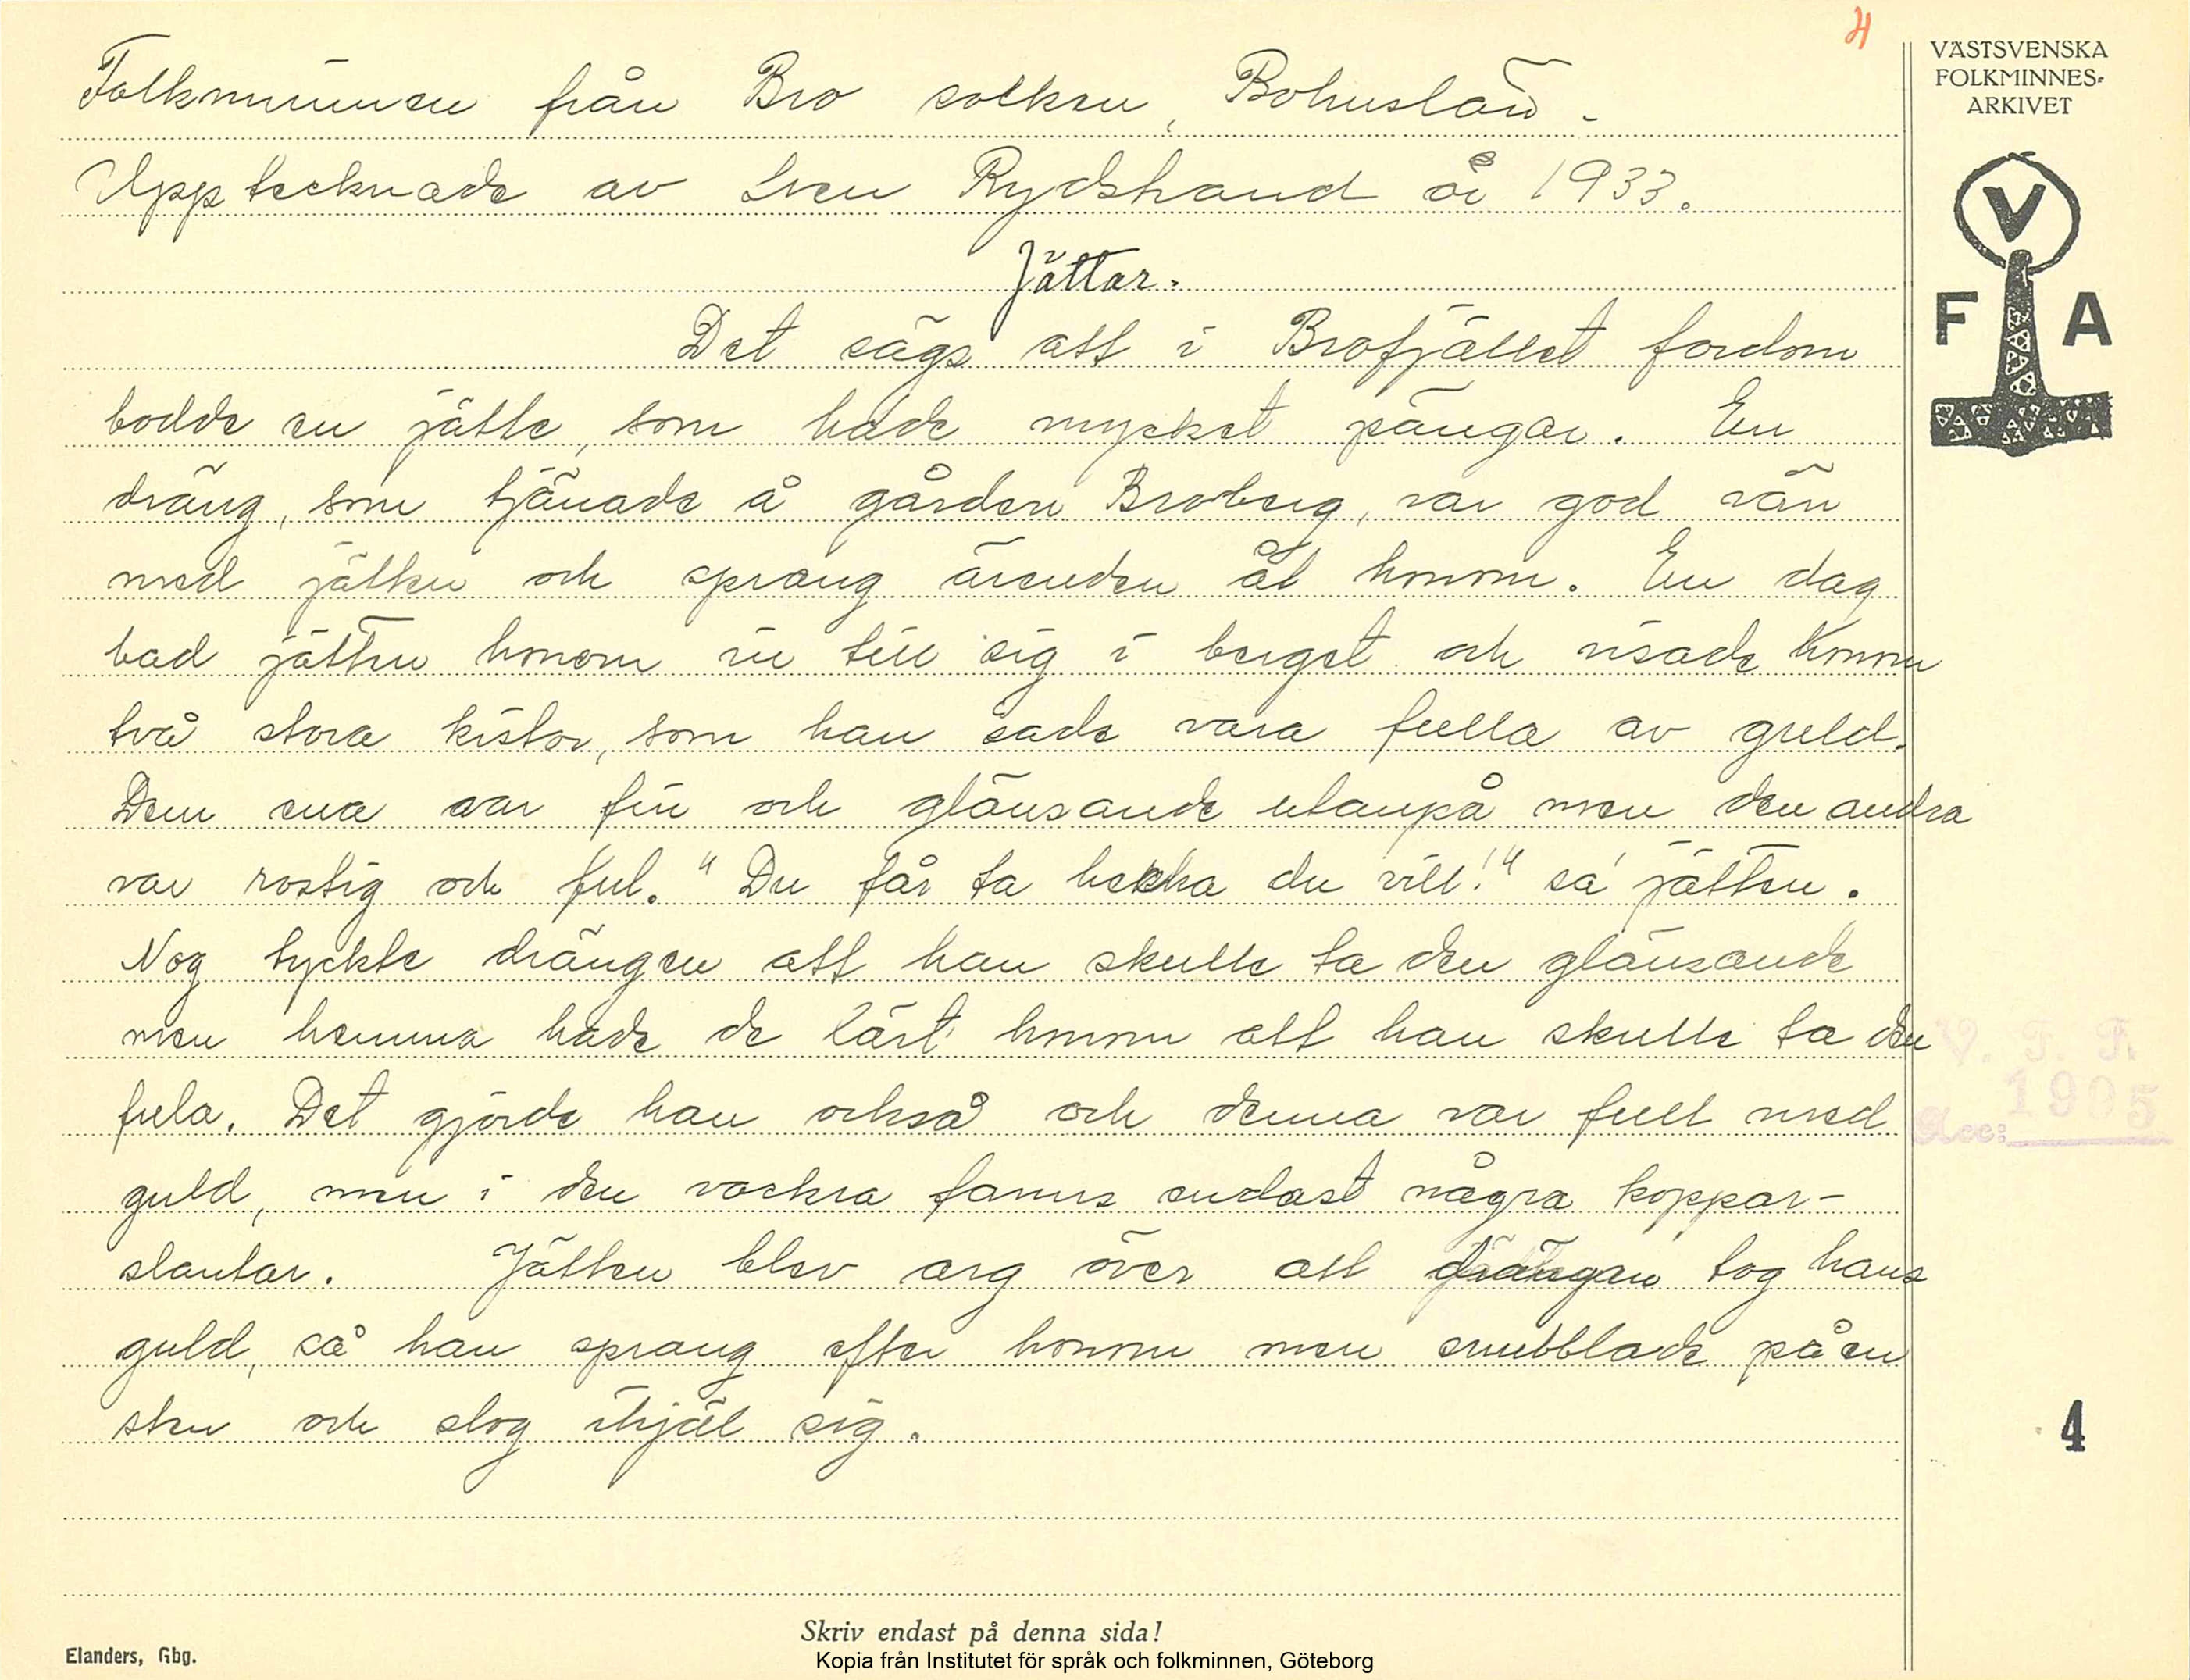 4
VÄSTSVENSKA
FOLKMINNES-
ARKIVET
V
F A
Folkminnen från Bro socken, Bohuslän.
Upptecknade av Sven Rydstrand år 1933.
Jättar.
Det sägs att i Brofjället fordom
bodde en jätte, som hade mycket pängar. En
dräng, som tjänade å gården Broberg, var god vän
med jätten och sprang ärenden åt honom. En dag
bad jätten honom in till sig i berget och visade honom
två stora kistor, som han sade vara fulla av guld.
Den ena var fin och glänsande utanpå men den andra
var rostig och ful. "Du får ta hekka du vill!" sa' jätten.
Nog tyckte drängen att han skulle ta den glänsande
men hemma hade de lärt honom att han skulle ta den
fula. Det gjorde han också och denna var full med
guld, men i den vackra fanns endast några koppar-
slantar. Jätten blev arg över att drängen tog hans
guld, så han sprang efter honom men snubblade på en
sten och slog ihjäl sig.
V. F. F.
Acc: 1905
4
Skriv endast på denna sida!
Elanders, Gbg.
Kopia från Institutet för språk och folkminnen, Göteborg